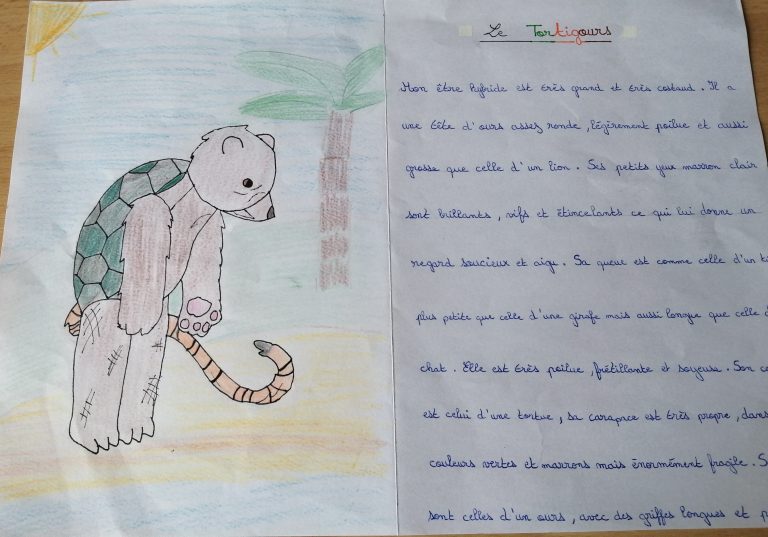 Le Tortigours
Mon être hybride est très grand et très costaud. Il a
une tête d'ours assez ronde, légèrement poilue et aussi
grosse que celle d'un lion. Ses petits yeux marron clair
sont brillants, vifs et étincelants ce qui lui donne un
regard soucieux et aigu. Sa queue est comme celle d'un
plus petite que celle d'une girafe mais aussi longue que celle
chat. Elle est très poilue, frétillante et soyeuse. Son
est celui d'une tortue, sa carapace est très propre, dans
couleurs vertes et marrons mais énormément fragile.
sont celles d'un ours, avec des griffes longues et